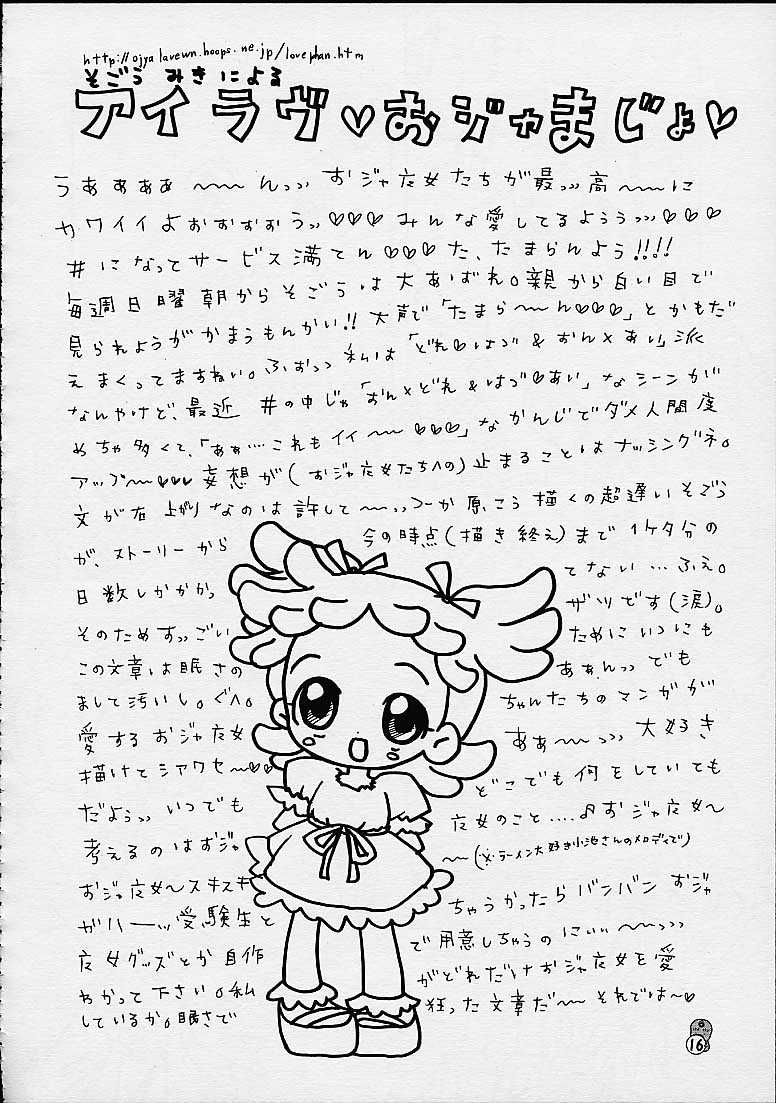 http://ojyalavewn.hoops.ne.jp/lovephan.htm
そごう みきによる
アイラヴ♡おジャまじょ♡
うあぁぁぁ〜〜んっっ おジャ魔女たちが最っっ高〜〜に
カワイイよおぉぉぉうっ♡♡♡みんな愛してるようぅっっ♡♡♡
#になってサービス満てん♡♡♡た、たまらんよう!!!!
毎週日曜朝からそごうは大あばれ。親から白い目で
見られようがかまうもんかい!!大声で「たまら〜〜ん♡♡♡」とかもだ
えまくってますねい。ふぉっっ 私は「どれ♡はづ&おん×あい」派
なんやけど、最近 #の中じゃ「おん×どれ&はづ♡あい」なシーンが
めちゃ多くて、「あぁ…これもイイ〜〜♡♡♡」なかんじでダメ人間度
アップ〜〜♡♡♡妄想が(おジャ魔女たちへの)止まることはナッシングネ。
文が右上がりなのは許して〜〜っっ つーか原こう描くの超遅いそごう
が、ストーリーから 今の時点(描き終え)まで1ケタ分の
日数しかかかっ てない…ふぇ。
そのためすっごい ザツです(涙)。
この文章は眠さの ためにいつにも
まして汚いし。ぐへ。 あぁんっっでも
愛するおジャ魔女 ちゃんたちのマンガが
描けてシアワセ〜♡♡ あぁ〜〜っっ 大好き
だようっっ いつでも どこでも何をしていても
考えるのはおジャ 魔女のこと……♪おジャ魔女〜
おジャ魔女〜スキスキ 〜〜(※ラーメン大好き小池さんのメロディで)
がハーーッ受験生と ちゃうかったらバンバン おジャ
魔女グッズとか自作 で用意しちゃうのにぃぃ〜〜っっっ
わかって下さい。私 がどれだけおジャ魔女を愛
しているか。眠さで 狂った文章だ〜〜それでは〜♡
16